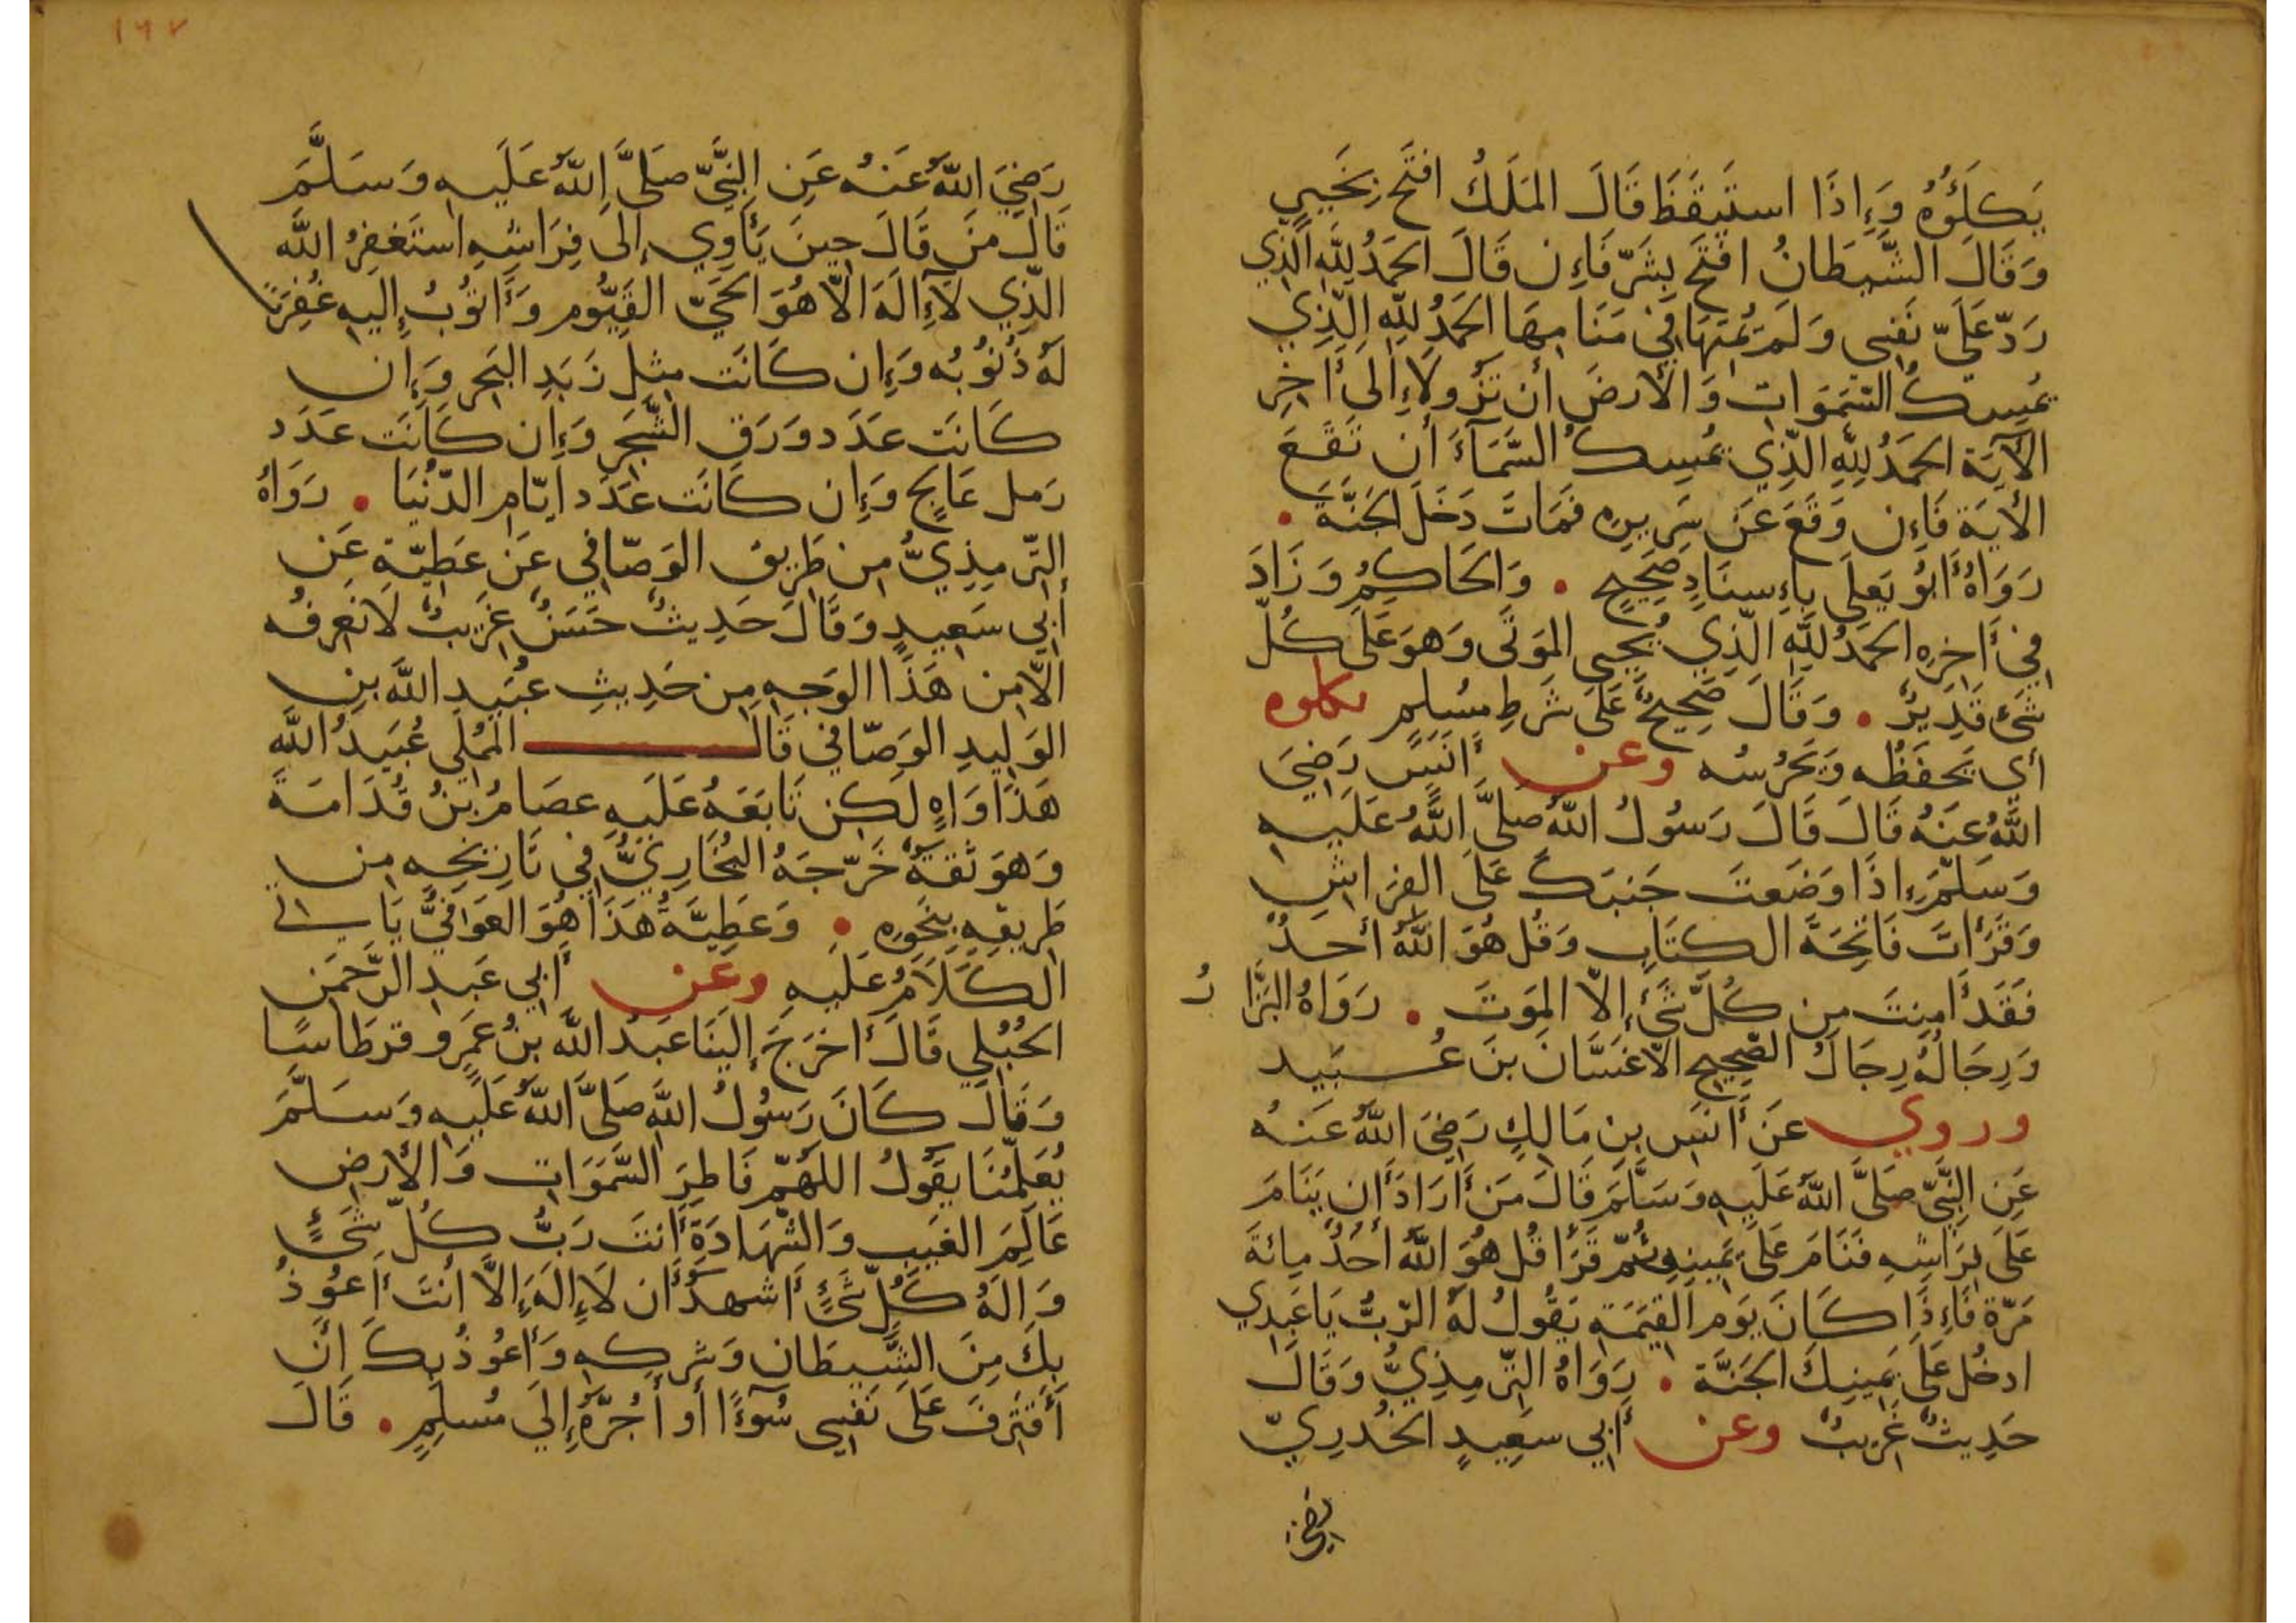 يَكلَؤُهُ وَإِذَا استَيقَظَ قَالَ المَلَكُ افتَح بِخَيرٍ
وَقَالَ الشَّيطَانُ افتَح بِشَرّ فَإِن قَالَ الحَمدُ لِلَّهِ الَّذِي
رَدّ عَلَيّ نَفسِي وَلَم يُمِتهَا فِي مَنَامِهَا الحَمدُ لِلّهِ الَّذِي
يُمسِكُ السّمَوَاتِ وَالأَرضَ أَن تَزُولَا إِلَى أَخِرِ
الآيَة الحَمدُ لِلّهِ الّذِي يُمسِكُ السَّمَآءَ أَن تَقَعَ
الأيَة فَإِن وَقَعَ عَن سَرِيرِهِ فَمَاتَ دَخَلَ الجَنَّةَ .
رَوَاهُ أَبُو يَعلَى بِإِسنَادٍ صَحِيحٍ . وَالحَاكِمُ وَزَادَ
فِي أَخِرِهِ الحَمدُ لِلَّهِ الّذِي يُحيِي المَوتَى وَهوَ عَلَى كُلّ
شَيء قَدِيرٌ . وَقَالَ صَحِيحٌ عَلَى شَرطِ مُسلِمٍ يكلوه
أي يَحفَظُه وَيَحرُسُه وعن أَنَسٍ رَضِيَ
اللَّهُ عَنهُ قَالَ قَالَ رَسُولُ اللَّهِ صَلَّى اللَّهُ عَلَيهِ
وَسَلّمَ إِذَا وَضَعتَ جَنبَكَ عَلَى الفِرَاشِ
وَقَرَأتَ فَاتِحَةَ الكتَابِ وَقُل هُوَ اللَّهُ أَحَدٌ
فَقَد أَمِنتَ مِن كُلّ شَيءٍ إِلّا المَوتَ . رَوَاهُ البَزَّارُ
وَرِجَالُهُ رِجَالُ الصّحِيحِ الّا غَسَّانَ بنَ عُبَيد
وروي عَن أَنَسِ بنِ مَالِكٍ رَضِيَ اللَّهُ عَنهُ
عَنِ النَّبِيّ صَلَّى اللَّهُ عَلَيهِ وَسَلَّمَ قَالَ مَن أَرَادَ أَن يَنَامَ
عَلَى فِرَاشِهِ فَنَامَ عَلَى يَمِينِهِ ثُمّ قَرَأَ قُل هُوَ اللَّهُ أَحَدٌ مِائةَ
مَرّة فَإِذَا كَانَ يَوم القِيَمَةِ يَقُولُ لَهُ الرّبُّ يَا عَبدِي
ادخُل عَلَى يَمِينِكَ الجَنَّةَ . رَوَاهُ التّرمِذِيُّ وَقَالَ
حَدِيثٌ غَرِيبٌ وعن أَبِي سَعِيدٍ الخُدرِيّ
رَضِيَ
١٦٧
رَضِيَ اللَّهُ عَنهُ عَنِ النَّبِيّ صَلَّى اللَّهُ عَلَيهِ وَسَلَّمَ
قَالَ مَن قَالَ حِينَ يَأوِي إِلَى فِرَاشِهِ استَغفِرُ اللَّه
الّذِي لَآ إِلَهَ الّا هُوَ الحَيّ القَيُّوم وَأَتُوبُ إِلَيهِ غُفِرَت
لَهُ ذُنُوبُه وَإِن كَانَت مِثلَ زَبَدِ البَحرِ وَإِن
كَانَت عَدَد وَرَقِ الشَّجَرِ وَإِن كَانَت عَدَد
رَمل عَالِجٍ وَإِن كَانَت عَدَد أيّام الدّنُيَا . رَوَاهُ
التّرمِذِيُّ مِن طَرِيق الوَصّافِي عَن عَطِيّة عَن
أَبِي سَعِيدٍ وَقَالَ حَدِيثٌ حَسَنٌ غَرِيبٌ لَا نَعرِفُه
الّا مِن هَذَا الوَجهِ مِن حَدِيثِ عُبَيدِ اللَّه بنِ
الوَلِيدِ الوَصّافِي قَالَ المُملِي عُبَيدُ اللَّه
هَذَا وَاهٍ لَكِن تَابَعَهُ عَلَيهِ عصَامُ بنُ قُدَامَةَ
وَهوَ ثقَةٌ خَرّجَهُ البُخَارِيُّ فِي تَارِيخِهِ مِن
طَرِيقِه بِنَحوِهِ . وَعَطِيَّةُ هَذَا هُوَ العَوفِيُّ يَاتِي
الكَلَامُ عَلَيهِ وعَن أَبِي عَبدِ الرَّحمَن
الحُبُلِي قَالَ أَخرَجَ إِلَينَا عَبدُ اللَّه بنُ عَمرٍو قرطَاسًا
وَقَالَ كَانَ رَسُولُ اللَّهِ صَلَّى اللَّهُ عَلَيهِ وَسَلَّمَ
يُعَلّمُنَا يَقُولُ اللَّهُمّ فَاطِرَ السَّمَوَاتِ وَالأَرضِ
عَالِمَ الغَيبِ وَالشّهَادَةِ أَنتَ رَبُّ كُلّ شَيءٍ
وَالَهُ كُلِّ شَيءٍ أَشهَدُ أَن لَا إِلَهَ إِلَّا أَنتَ أَعُوذُ
بِكَ مِنَ الشَّيطَانِ وَشركِهِ وَأَعُوذُ بِكَ أَن
أَقتَرِفَ عَلَى نَفسِي سُوءًا أَو أَجُرَّهُ إِلَى مُسلِمٍ . قَالَ